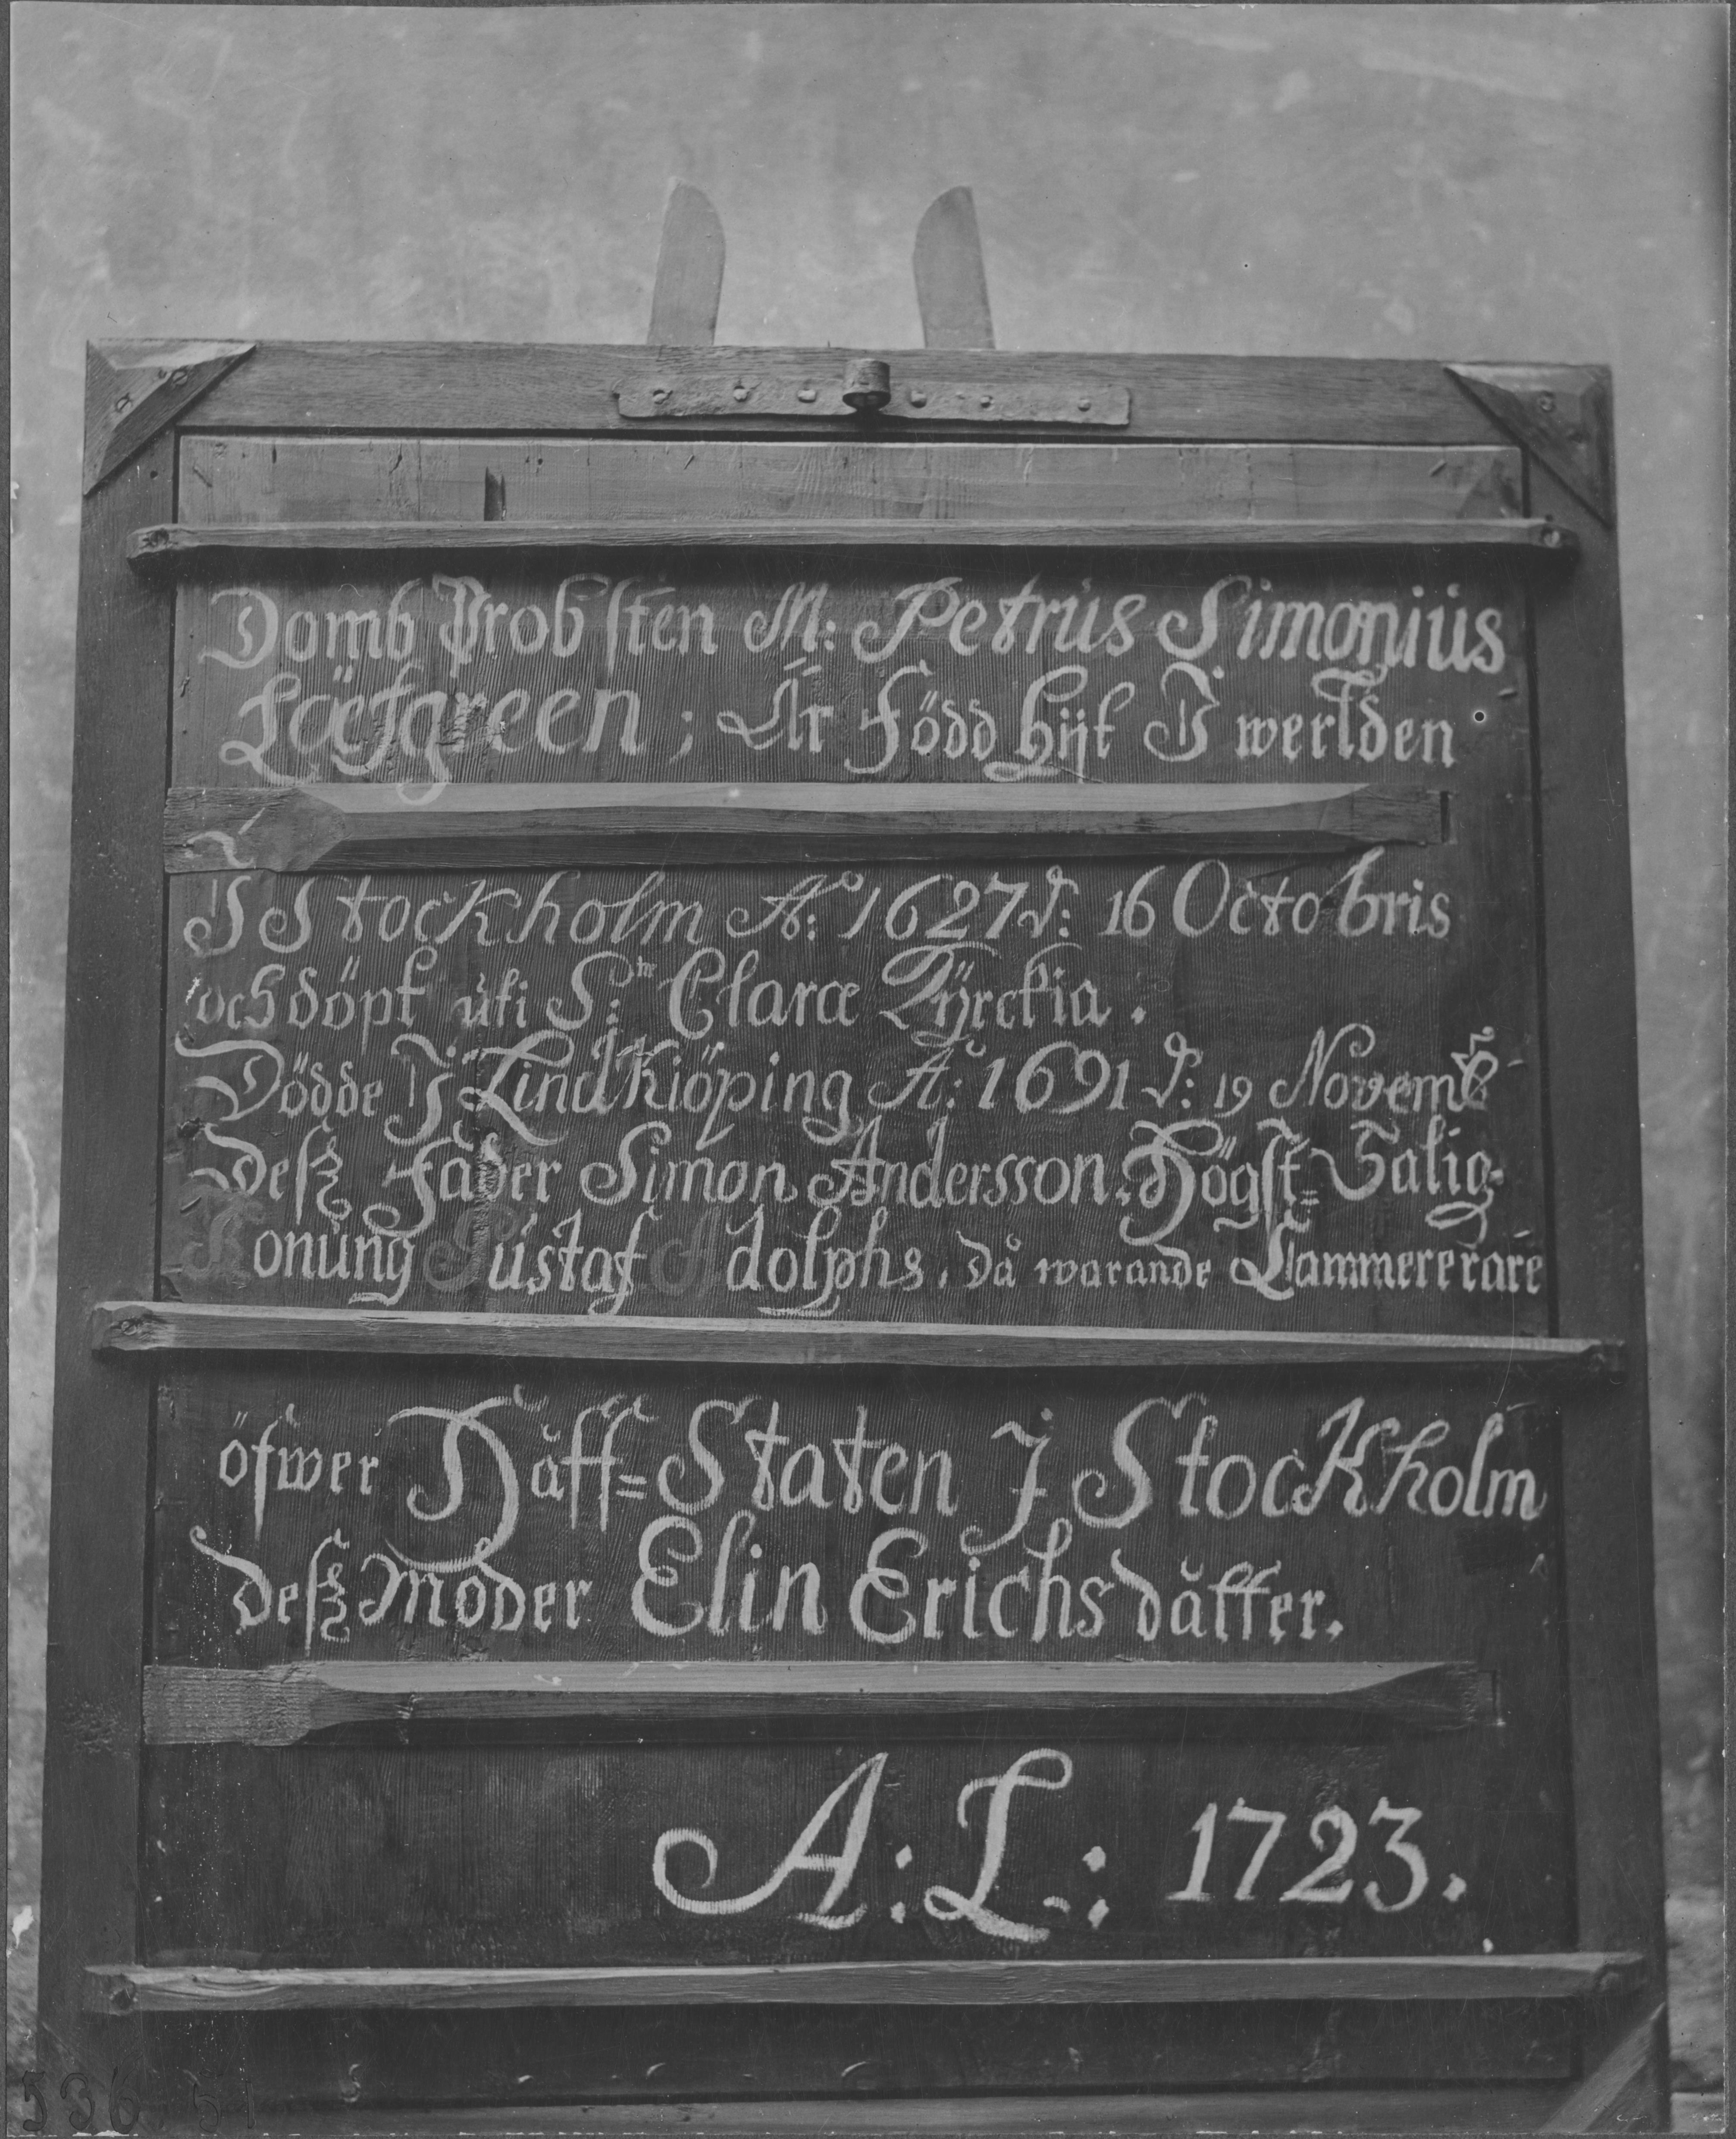 Domb Probsten M: Petrus Simonius
Læfgreen; Är Född hijt I werlden
I Stockholm Aº: 1627 d: 16 Octobris
och döpt uti S:tæ Claræ Kÿrckia.
Dödde I Lindkiöping Aº: 1691 d: 19 Novemb
Desz Fader Simon Andersson. Högst=Salig.
Konung Gustaf Adolphs. då warande Cammererare
öfwer Håff=Staten I Stockholm
desz Moder Elin Erichsdåtter.
A:L: 1723.
536 51